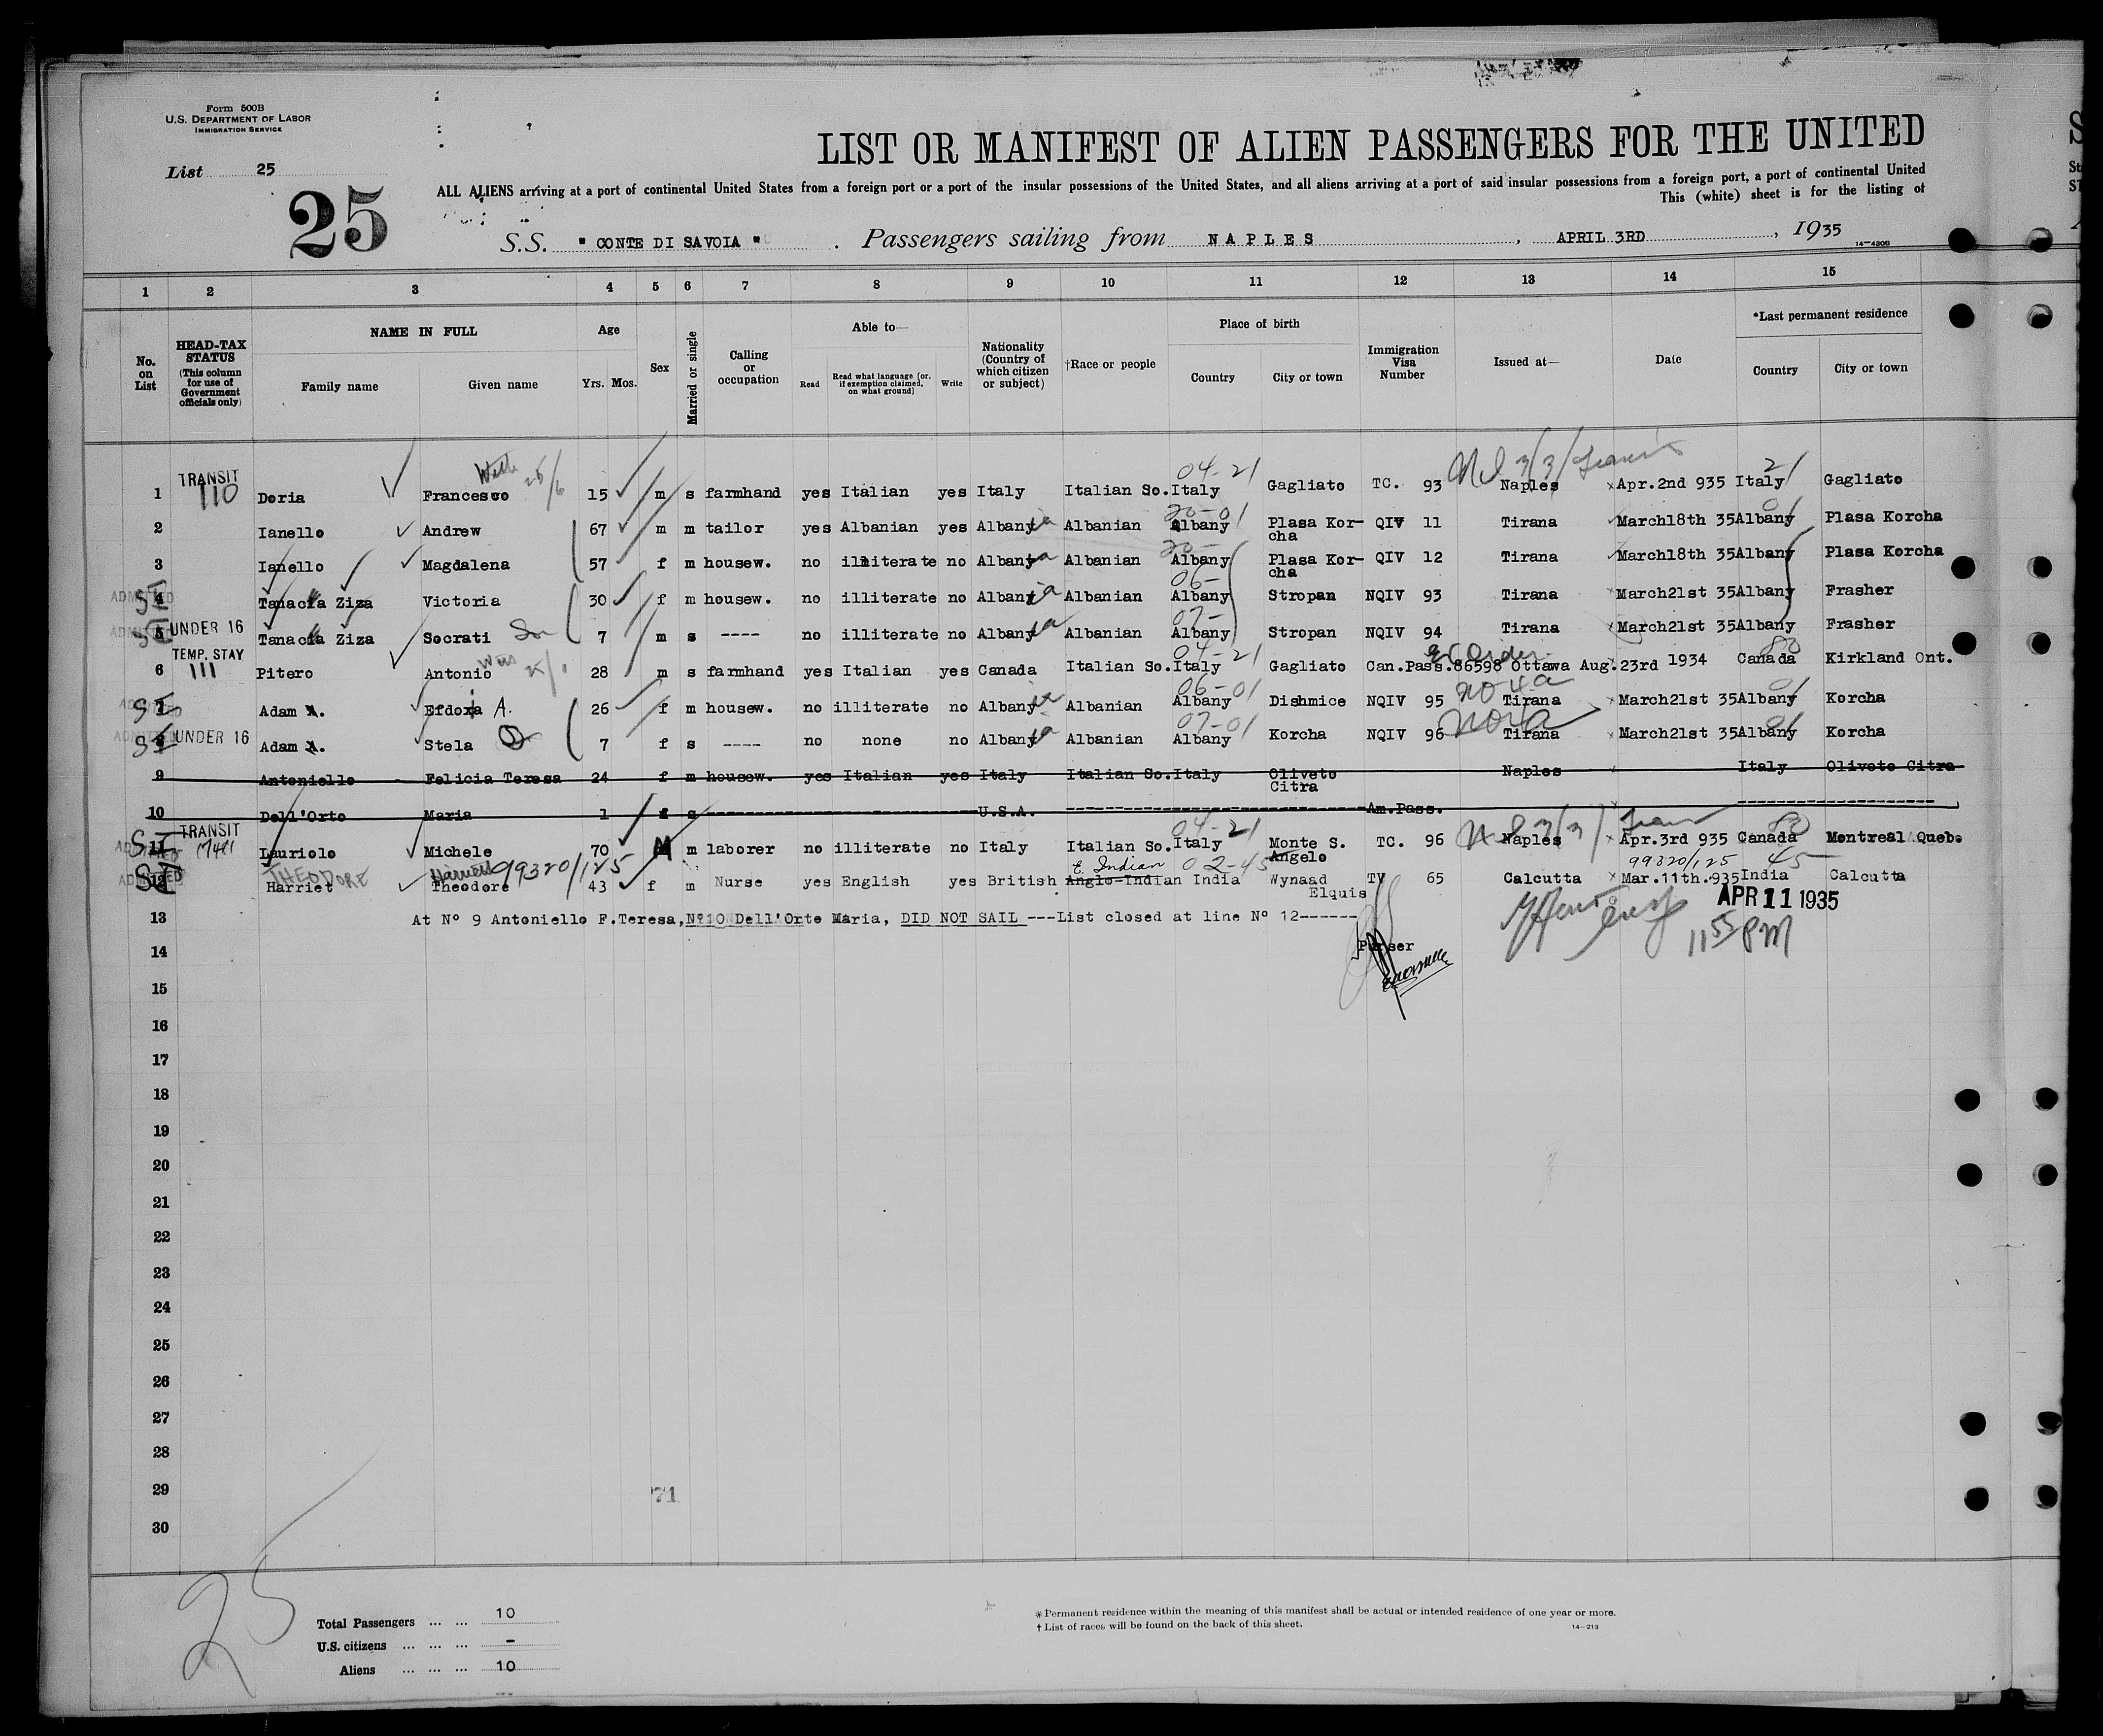 Form 500B
U.S. DEPARTMENT OF LABOR
IMMIGRATION SERVICE
List 25
25
LIST OR MANIFEST OF ALIEN PASSENGERS FOR THE UNITED
ALL ALIENS arriving at a port of continental United States from a foreign port or a port of the insular possessions of the United States, and all aliens arriving at a port of said insular possessions from a foreign port, a port of continental United
This (white) sheet is for the listing of
S.S. " CONTE DI SAVOIA " . Passengers sailing from N A P L E S , APRIL 3RD , 1935
14—4308
1 2 3 4 5 6 7 8 9 10 11 12 13 14 15
No. on List
HEAD-TAX STATUS (This column for use of Government officials only)
NAME IN FULL
Family name Given name
Age
Yrs. Mos.
Sex
Married or single
Calling or occupation
Able to—
Read Read what language [or, if exemption claimed, on what ground] Write
Nationality (Country of which citizen or subject)
†Race or people
Place of birth
Country City or town
Immigration Visa Number
Issued at—
Date
*Last permanent residence
Country City or town
04-21 21
1 TRANSIT 110 Doria Francesco 15 m s farmhand yes Italian yes Italy Italian So. Italy Gagliato TC. 93 Naples Apr.2nd 935 Italy Gagliato
20-01 01
2 Ianello Andrew 67 m m tailor yes Albanian yes Albany ia Albanian Albany Plasa Korcha QIV 11 Tirana March18th 35 Albany Plasa Korcha
20-
3 Ianello Magdalena 57 f m housew. no illiterate no Albany ia Albanian Albany Plasa Korcha QIV 12 Tirana March18th 35 Albany Plasa Korcha
06-
ADMITTED SI 4 Tanacia Ziza Victoria 30 f m housew. no illiterate no Albany ia Albanian Albany Stropan NQIV 93 Tirana March21st 35 Albany Frasher
07-
ADMITTED SI 5 UNDER 16 Tanacia Ziza Socrati Son 7 m s ---- no illiterate no Albany ia Albanian Albany Stropan NQIV 94 Tirana March21st 35 Albany Frasher
04-21 83
6 TEMP. STAY 111 Pitero Antonio 28 m s farmhand yes Italian yes Canada Italian So. Italy Gagliato Can.Pass.86598 Ottawa Aug.23rd 1934 Canada Kirkland Ont.
06-01 no 4a 01
ADMITTED SI 7 Adam A. Efdoxia A. 26 f m housew. no illiterate no Albany ia Albanian Albany Dishmice NQIV 95 Tirana March21st 35 Albany Korcha
07-01 no 4a 01
ADMITTED SI 8 UNDER 16 Adam A. Stela D 7 f s ---- no none no Albany ia Albanian Albany Korcha NQIV 96 Tirana March21st 35 Albany Korcha
9 Antoniello - Felicia Teresa 24 f m housew. yes Italian yes Italy Italian So. Italy Oliveto Citra Naples Italy Oliveto Citra
10 Dell'Orto Maria 1 f s ---- U.S.A. ---- Am.Pass. ----
04-21 83
ADMITTED SI 11 TRANSIT Lauriolo Michele 70 M m laborer no illiterate no Italy Italian So. Italy Monte S. Angelo TC. 96 Naples Apr.3rd 935 Canada Montreal Queb.
THEODORE Harriett 99320/125 E. Indian 02-45 99320/125 45
ADMITTED SI 12 Harriet Theodore 43 f m Nurse yes English yes British Anglo-Indian India Wynaad Elquis TV 65 Calcutta Mar.11th.935 India Calcutta
APR 11 1935
13 At Nº 9 Antoniello F.Teresa,Nº10 Dell'Orte Maria, DID NOT SAIL ---List closed at line Nº 12------
11 55 PM
14 Purser
15
16
17
18
19
20
21
22
23
24
25
26
27
28
29
71
30
25
Total Passengers ... ... 10
U.S. citizens ... ... ... -
Aliens ... ... ... 10
* Permanent residence within the meaning of this manifest shall be actual or intended residence of one year or more.
† List of races will be found on the back of this sheet.
14—213